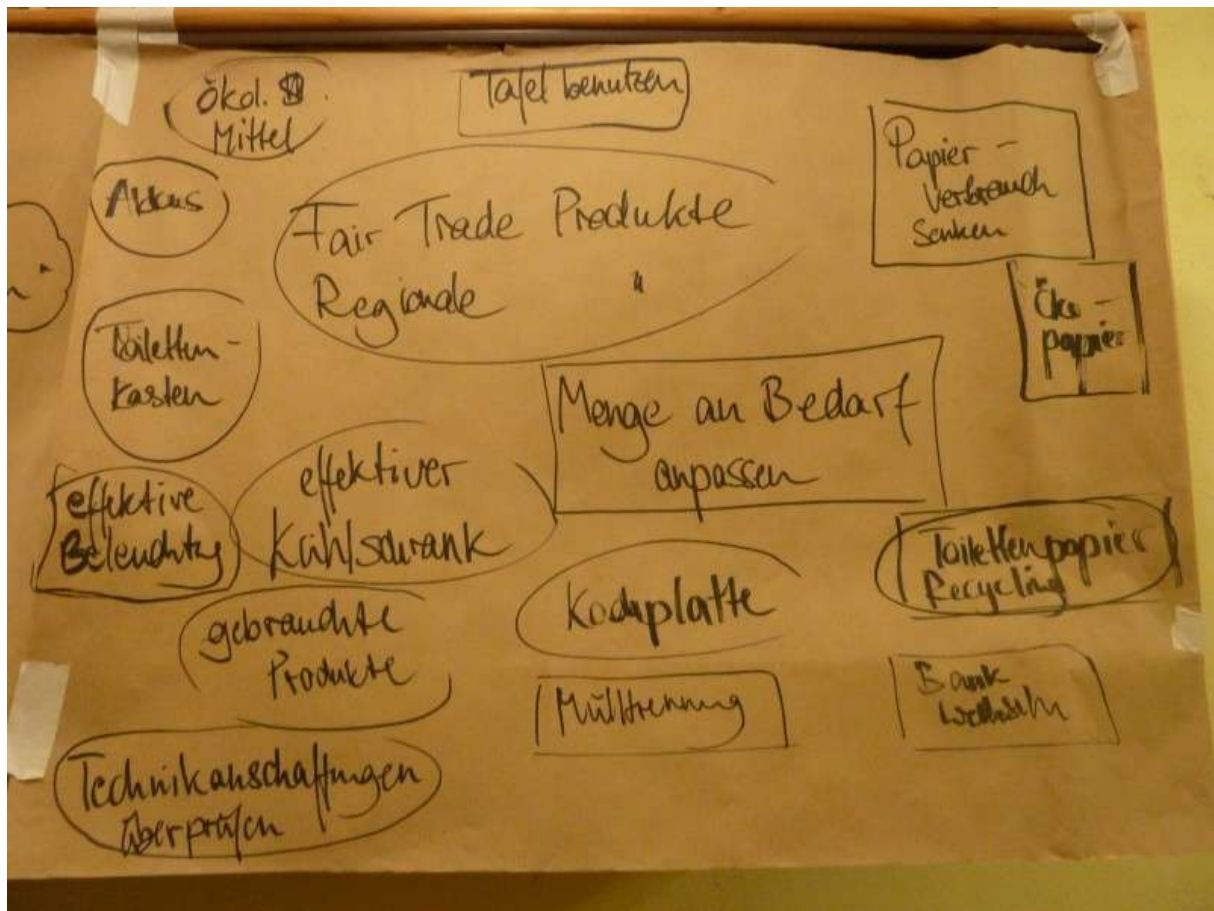 ökol.
Mittel
Tafel benutzen
Papier-
verbrauch
senken
Akkus
Fair Trade Produkte
Regionale "
Öko-
papier
Toiletten-
kasten
Menge an Bedarf
anpassen
effektiver
Kühlschrank
effektive
Beleuchtung
Toilettenpapier
Recycling
Kochplatte
gebrauchte
Produkte
Mülltrennung
Bank
wechseln
Technikanschaffungen
überprüfen